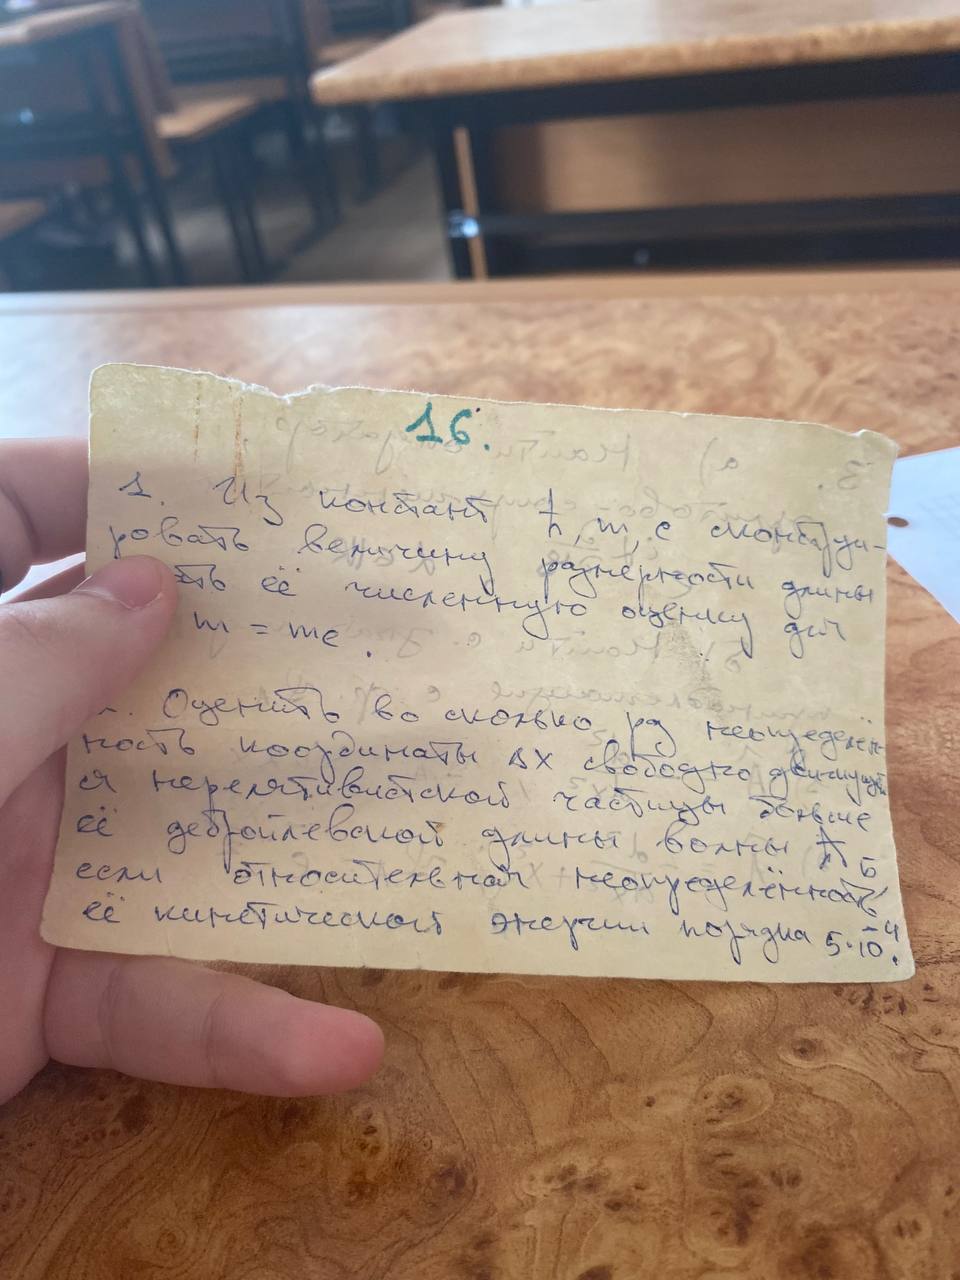 16.
1. Из констант ħ, m, c сконструи-
ровать величину размерности длины
ать её численную оценку для
m = me.
. Оценить во сколько раз неопределён-
ность координаты Δx свободно движущей
ся нерелятивистской частицы больше
её дебройлевской длины волны ƛБ
если относительная неопределённость
её кинетической энергии порядка 5·10⁻⁴.